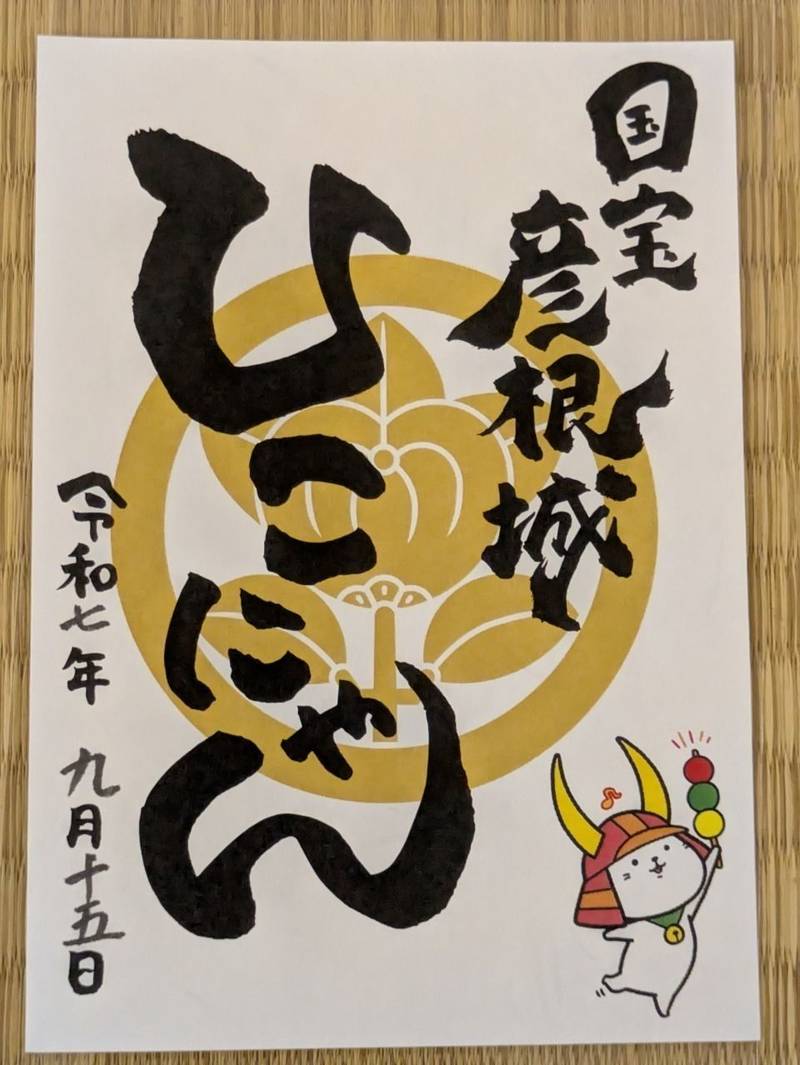 国宝
彦根城
ひこにゃん
令和七年 九月十五日